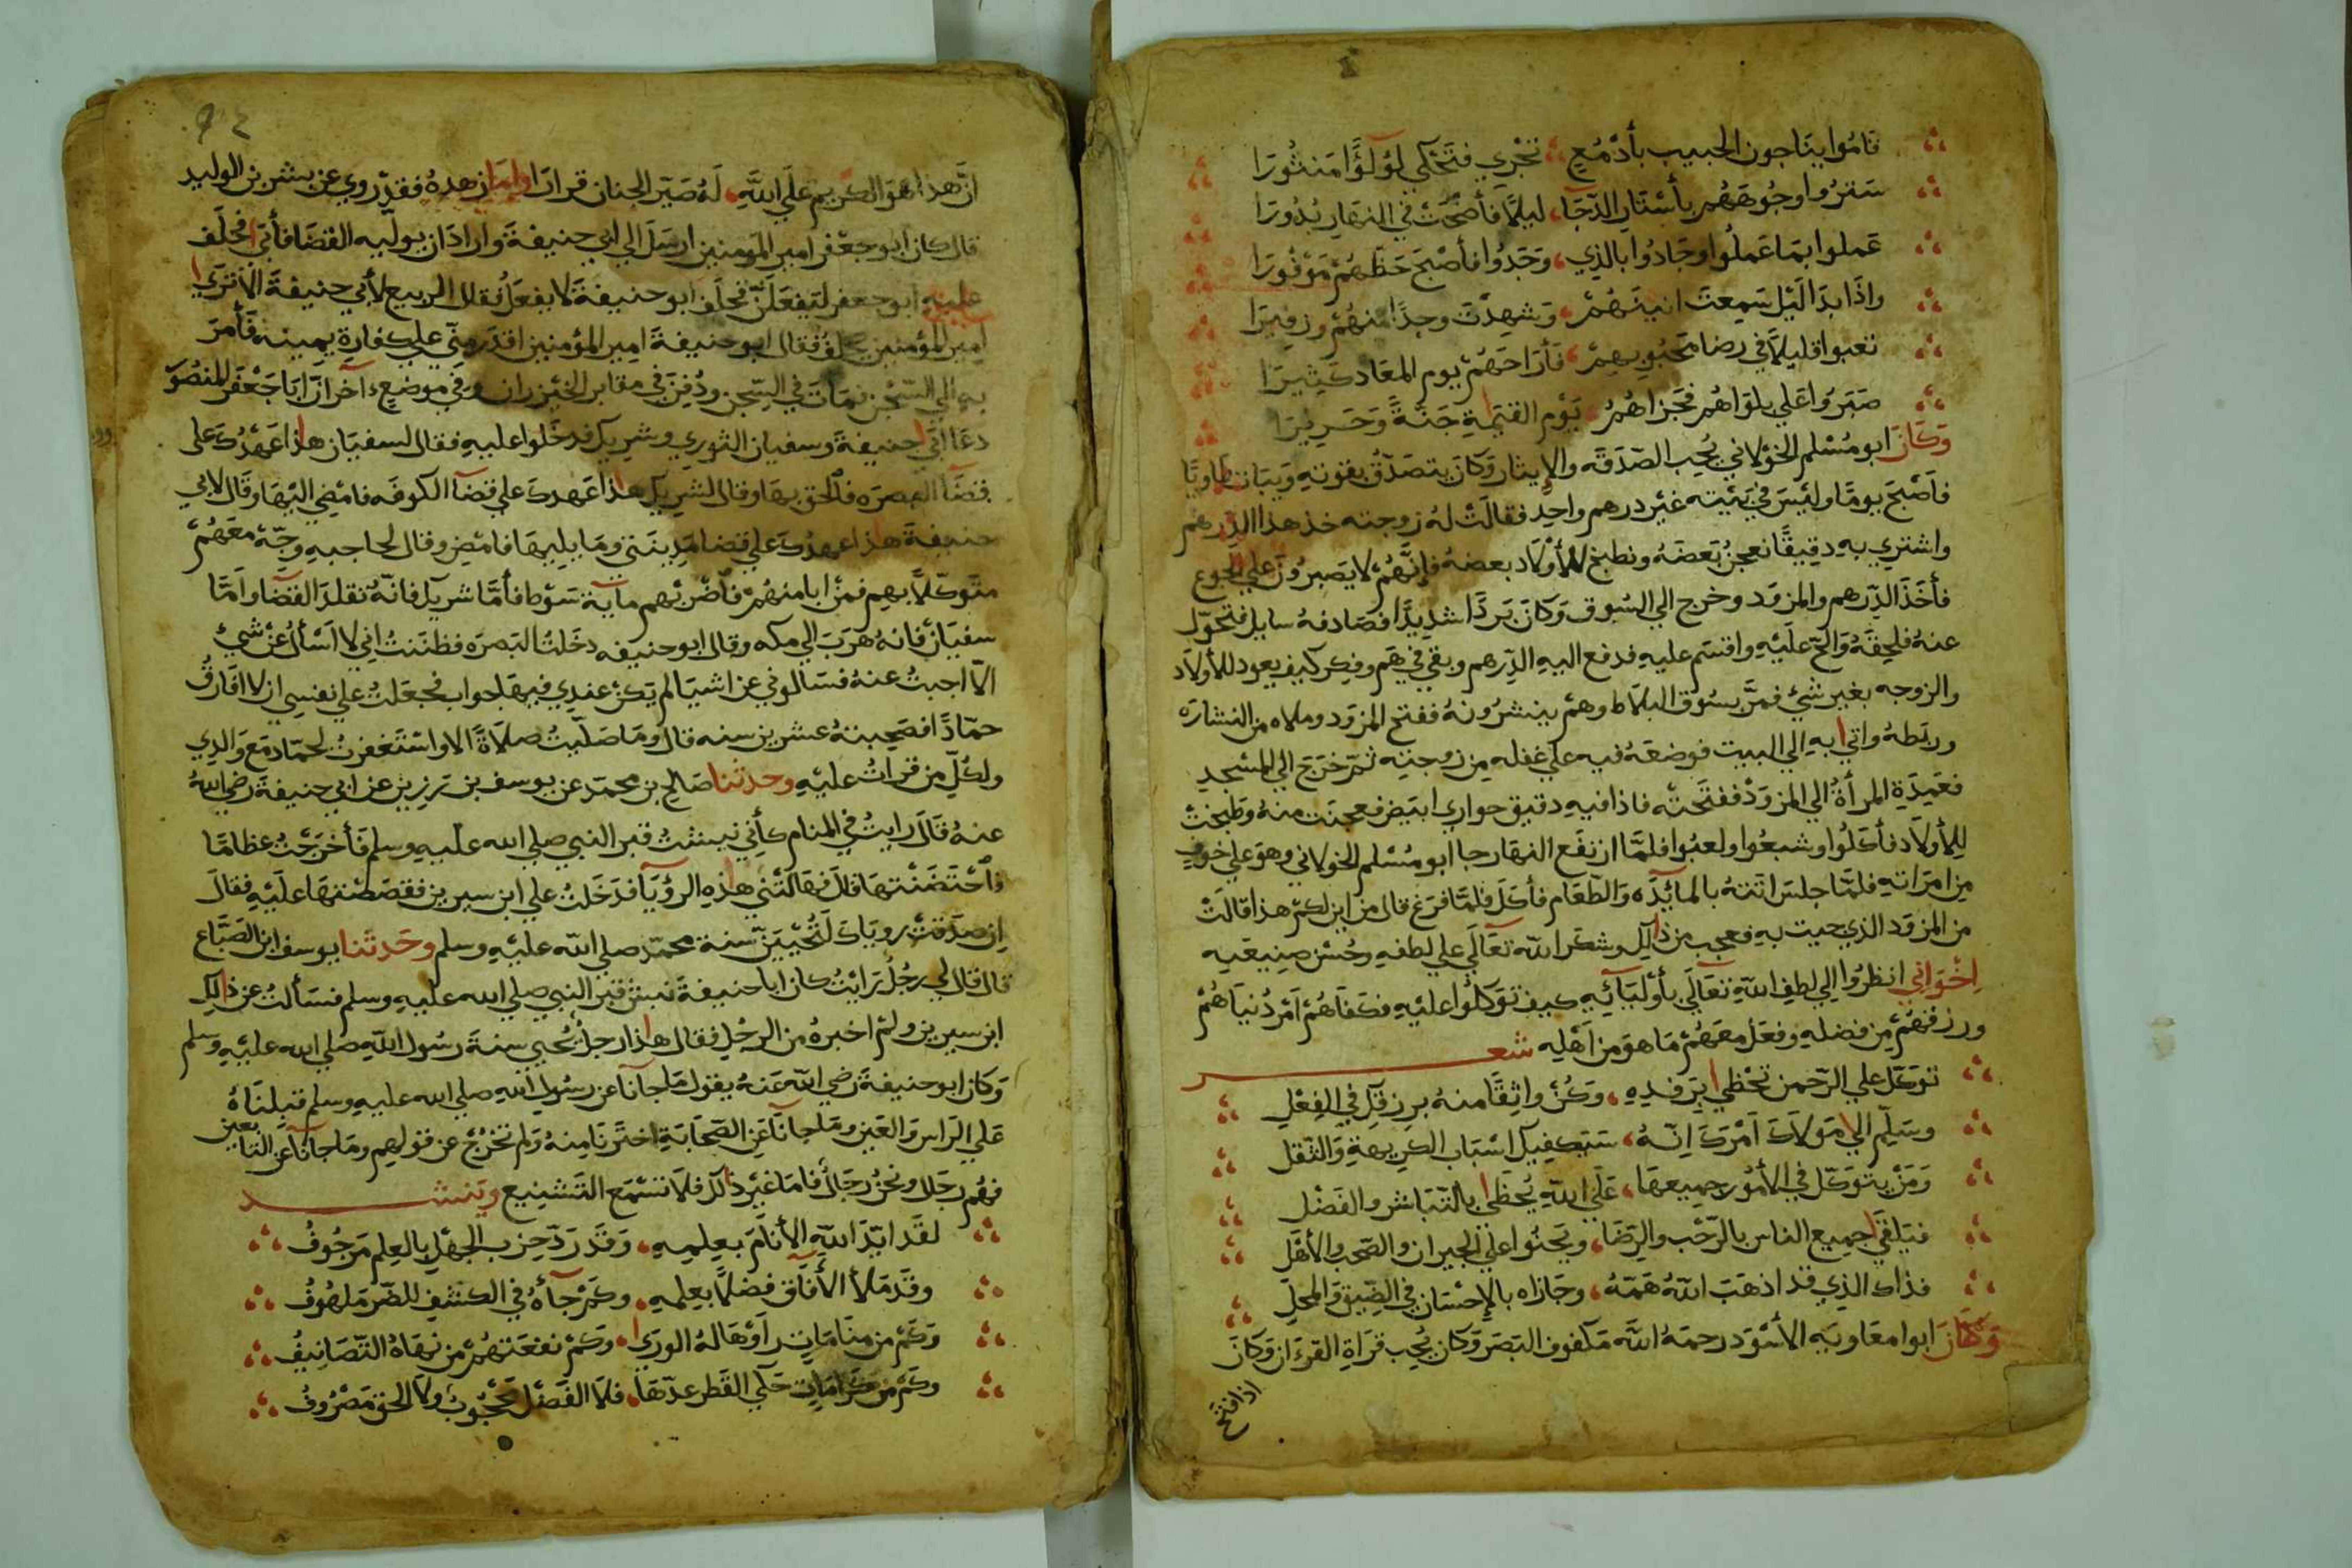 قاموا يناجون الحبيب بأدمع ، تجري فتحكي لؤلؤا منثورا
ستروا وجوههم بأستار الدجا ، ليلا فأضحت في النهار بدورا
عملوا بما عملوا وجادوا بالذي ، وجدوا فأصبح حظهم موفورا
واذا بدا ليل سمعت انينهم ، وشهدت وجدا منهم وزفيرا
تعبوا قليلا في رضا محبوبهم ، فأراحهم يوم المعاد كثيرا
صبروا على بلواهم فجزاهم ، يوم القيمة جنة وحريرا
وكان ابو مسلم الخولاني يحب الصدقه والإيثار وكان يتصدق بقوته ويبات طاويا
فأصبح يوما وليس في بيته غير درهم واحد فقالت له زوجته خذ هذا الدرهم
واشتري به دقيقا نعجن بعضه ونطبخ للأولاد بعضه فإنهم لا يصبرون على الجوع
فأخذ الدرهم والمزود وخرج الي السوق وكان بردا شديدا فصادفه سايل فتحول
عنه فلحقه والح عليه واقسم عليه فدفع اليه الدرهم وبقي في هم وفكر كيف يعود للأولاد
والزوجه بغير شئ فمر بسوق البلاط وهم ينشرونه ففتح المزود وملاه من النشاره
وربطه واتى به الي البيت فوضعه فيه على غفله من زوجته ثم خرج الي المسجد
فعمدة المرأة الي المزود ففتحته فاذا فيه دقيق حواري ابيض فعجنت منه وطبخت
للأولاد فأكلوا وشبعوا ولعبوا فلما ارتفع النهار جا ابو مسلم الخولاني وهو على خوف
من امراته فلما جلس اتته بالمائده والطعام فأكل فلما فرغ قال من اين لكم هذا قالت
من المزود الذي جيت به فعجب من ذالك وشكر الله تعالى على لطفه وحسن صنيعيه
اخواني انظروا الي لطف الله تعالي بأوليائه كيف توكلوا عليه فكفاهم امر دنياهم
ورزقهم من فضله وفعل معهم ما هو من اهله شعر
توكل على الرحمن تحظي برفده ، وكن واثقا منه برزقك في الفعل
وسلم الي مولاك امرك انه ، سيكفيك اسباب الكريهة والثقل
ومن يتوكل في الأمور جميعها ، على الله يحظى بالتباشر والفضل
فيلقي جميع الناس بالرحب والرضا ، ويحنوا على الجيران والصحب والأهل
فذاك الذي قد اذهب الله همه ، وجازاه بالإحسان في الضيق والمحل
وكان ابوا معاويه الأسود رحمة الله مكفوف البصر وكان يحب قراة القرءان وكان
اذا فتح
٩٤
ان هذا هو الكريم على الله ، له صير الجنان قرارا واما زهده فقد روي عن بشر بن الوليد
قال كان ابو جعفر امير المومنين ارسل الي ابي حنيفة واراد ان يوليه القضا فأبى فحلف
عليه ابو جعفر لتفعلن فحلف ابو حنيفة لا يفعل فقال الربيع لأبي حنيفة الا ترى
امير المؤمنين يحلف فقال ابو حنيفة امير المؤمنين اقدر مني على كفارة يمينه فأمر
به الي السجن فمات في السجن ودفن في مقابر الخيزران وفي موضع ءاخر ان ابا جعفر المنصور
دعا أبي حنيفة وسفيان الثوري وشريك فدخلوا عليه فقال لسفيان هاذا عهدك على
قضا البصره فالحق بها وقال لشريك هذا عهدك على قضا الكوفه فامضي اليها وقال لابي
حنيفة هذا عهدك على قضا مدينتي وما يليها فامض وقال لحاجبه وجه معهم
متوكلا بهم فمن ابا منهم فاضربهم مايه سوط فأما شريك فانه تقلد القضا واما
سفيان فانه هرب الي مكه وقال ابو حنيفه دخلت البصره فظننت اني لا اسأل عن شئ
الا اجبت عنه فسالوني عن اشيا لم يكن عندي فيها جواب فجعلت على نفسي ان لا افارق
حمادا فصحبته عشرين سنه قال وما صليت صلاة الا واستغفرت لحماد مع والدي
ولكل من قرات عليه وحدثنا صالح بن محمد عن يوسف بن رزين عن ابي حنيفة رضي الله
عنه قال رايت في المنام كأني نبشت قبر النبي صلى الله عليه وسلم فأخرجت عظاما
فاحتضنتها قال فهالتني هاذه الرؤيا فدخلت على ابن سيرين فقصصتها عليه فقال
ان صدقت روياك لتحيين سنة محمد صلى الله عليه وسلم وحدثنا يوسف ابن الصباع
قال قال لي رجل رايت كان ابا حنيفة نبش قبر النبي صلى الله عليه وسلم فسألت عن ذالك
ابن سيرين ولم اخبره من الرجل فقال هاذا رجل يحيي سنة رسول الله صلى الله عليه وسلم
وكان ابو حنيفة رضي الله عنه يقول ما جآنا عن رسول الله صلى الله عليه وسلم قبلناه
على الراس والعين وما جانا عن الصحابة اخترنا منه ولم نخرج عن قولهم وما جآنا عن التابعين
فهم رجال ونحن رجال فاما غير ذالك فلا تسمع التشنيع وينشد
لقد ايد الله الأنام بعلمه ، وقد رد حزب الجهل بالعلم مرجوف
وقد ملأ الأفاق فضلا بعلمه ، وكم جآه في الكشف للضر ملهوف
وكم من منامات راوها له الورى ، وكم نفعتهم من نهاه التصانيف
وكم من كرامات حكي القطر عدها ، فلا الفضل محجوب ولا الحق مصروف